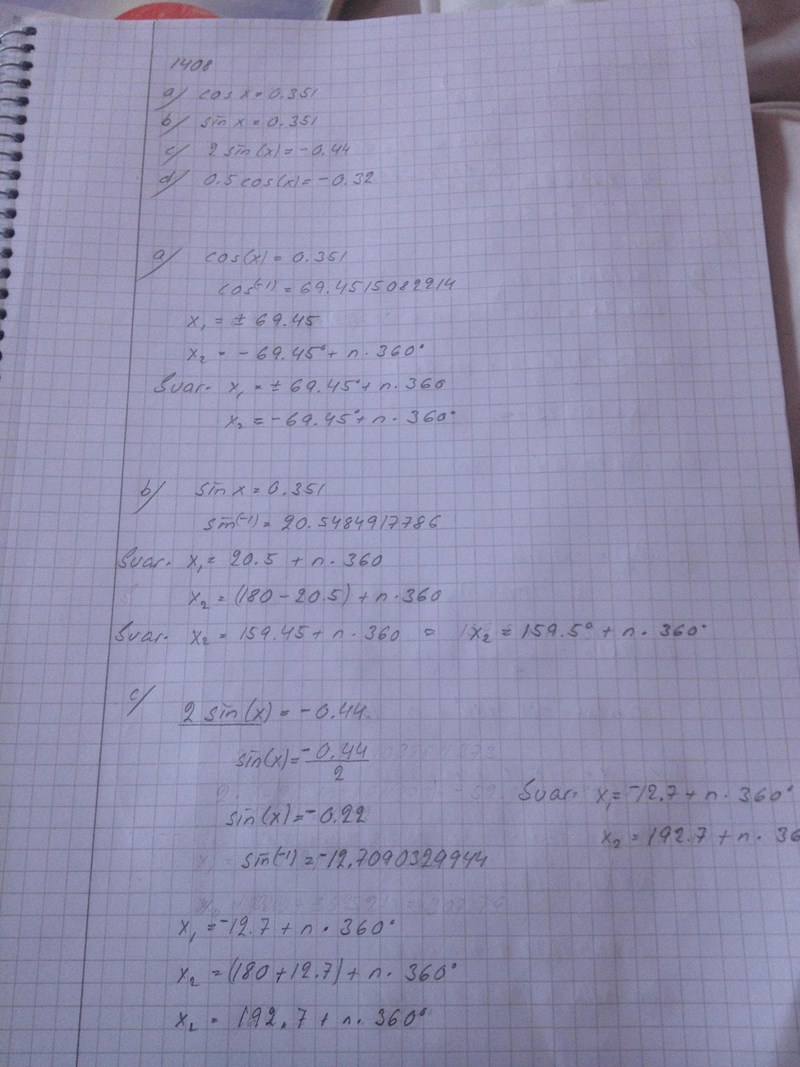 1408
a) cos x = 0.351
b) sin x = 0.351
c) 2 sin(x) = -0.44
d) 0.5 cos(x) = -0.32
a) cos(x) = 0.351
cos(-1) = 69.4515082214
x₁ = ± 69.45
x₂ = - 69.45° + n · 360°
Svar. x₁ = ± 69.45° + n · 360
x₂ = -69.45° + n · 360°
b) sin x = 0.351
sin(-1) = 20.5484917786
Svar. x₁ = 20.5 + n · 360
x₂ = (180 - 20.5) + n · 360
Svar. x₂ = 159.45 + n · 360 = x₂ = 159.5° + n · 360°
c) 2 sin(x) = -0.44
sin(x) = -0.44/2
sin(x) = -0.22
sin(-1) = -12.7090329944
x₁ = -12.7 + n · 360°
x₂ = (180 + 12.7) + n · 360°
x₂ = 192.7 + n · 360°
Svar. x₁ = -12.7 + n · 360°
x₂ = 192.7 + n · 36